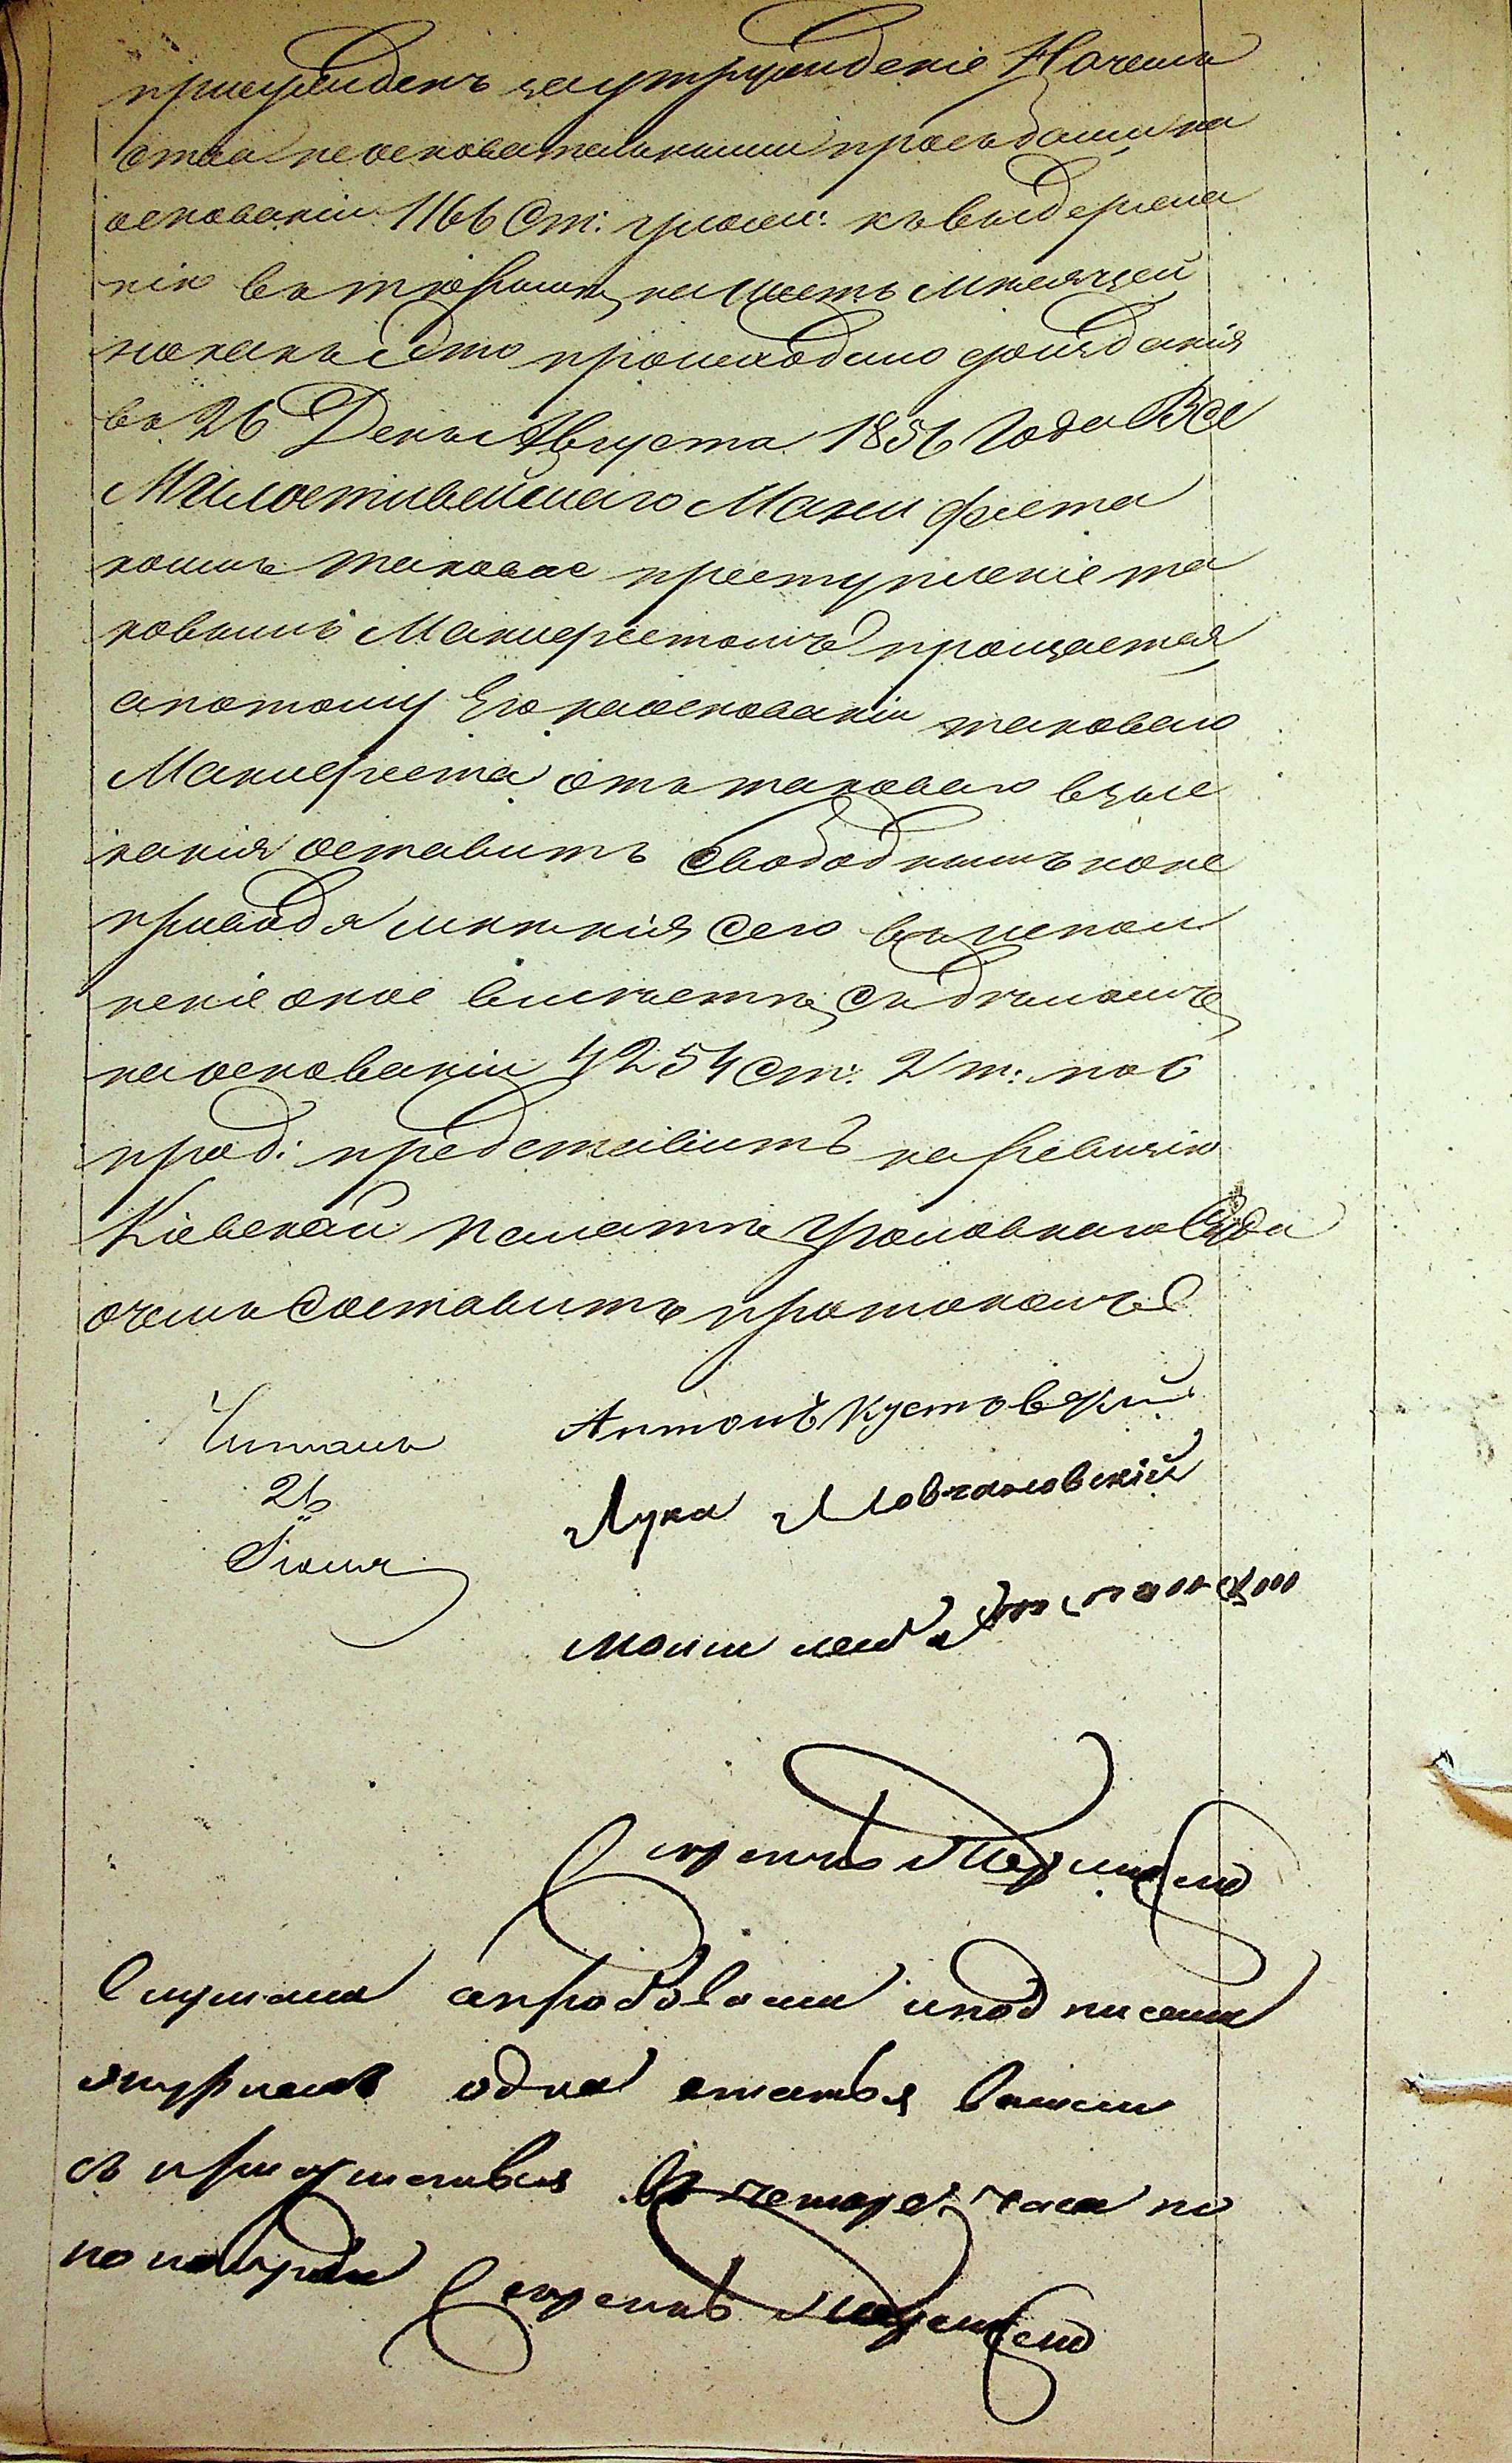 присужденъ заутружденіе Началь
ства неосновательными прозьбами на
основаніи 1166 Ст: улож: къ выдержа
нію въ тюрьмѣ, на шесть мѣсяцей
нокакъ это происходило доизданія
въ 26 День Августа 1856 Года Все
Милостивейшаго Мани феста
коимъ таковое преступленіе та
ковымъ Манифестомъ прощается,
апотому Его наоснованіи таковаго
Манифеста отъ таковаго взыс
канія оставить свободнымъ ноне
приводя мнѣнія сего въ испол
неніе оное вмѣстѣ, съ дѣломъ,
наоснованіи 4254 Ст: 2 т: по 6
прод: представить на Ревизію
Кіевской Палатѣ Уголовнаго Суда
очемъ составить протоколъ
Читалъ Антонъ Кустовскій
26 Лука Мовчановскій
Іюня
Секретарь
Слушали апробовали иподписали
журналъ одна статья вышли
съ присутствія въ четыре часа по
пополудни Секретарь